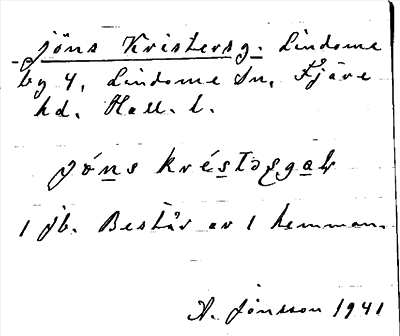 Jöns Kristersg. Lindome
by 4, Lindome sn, Fjäre
hd. Hall. l.
jöns
1 jb. Består av 1 hemman.
A. Jonsson 1941